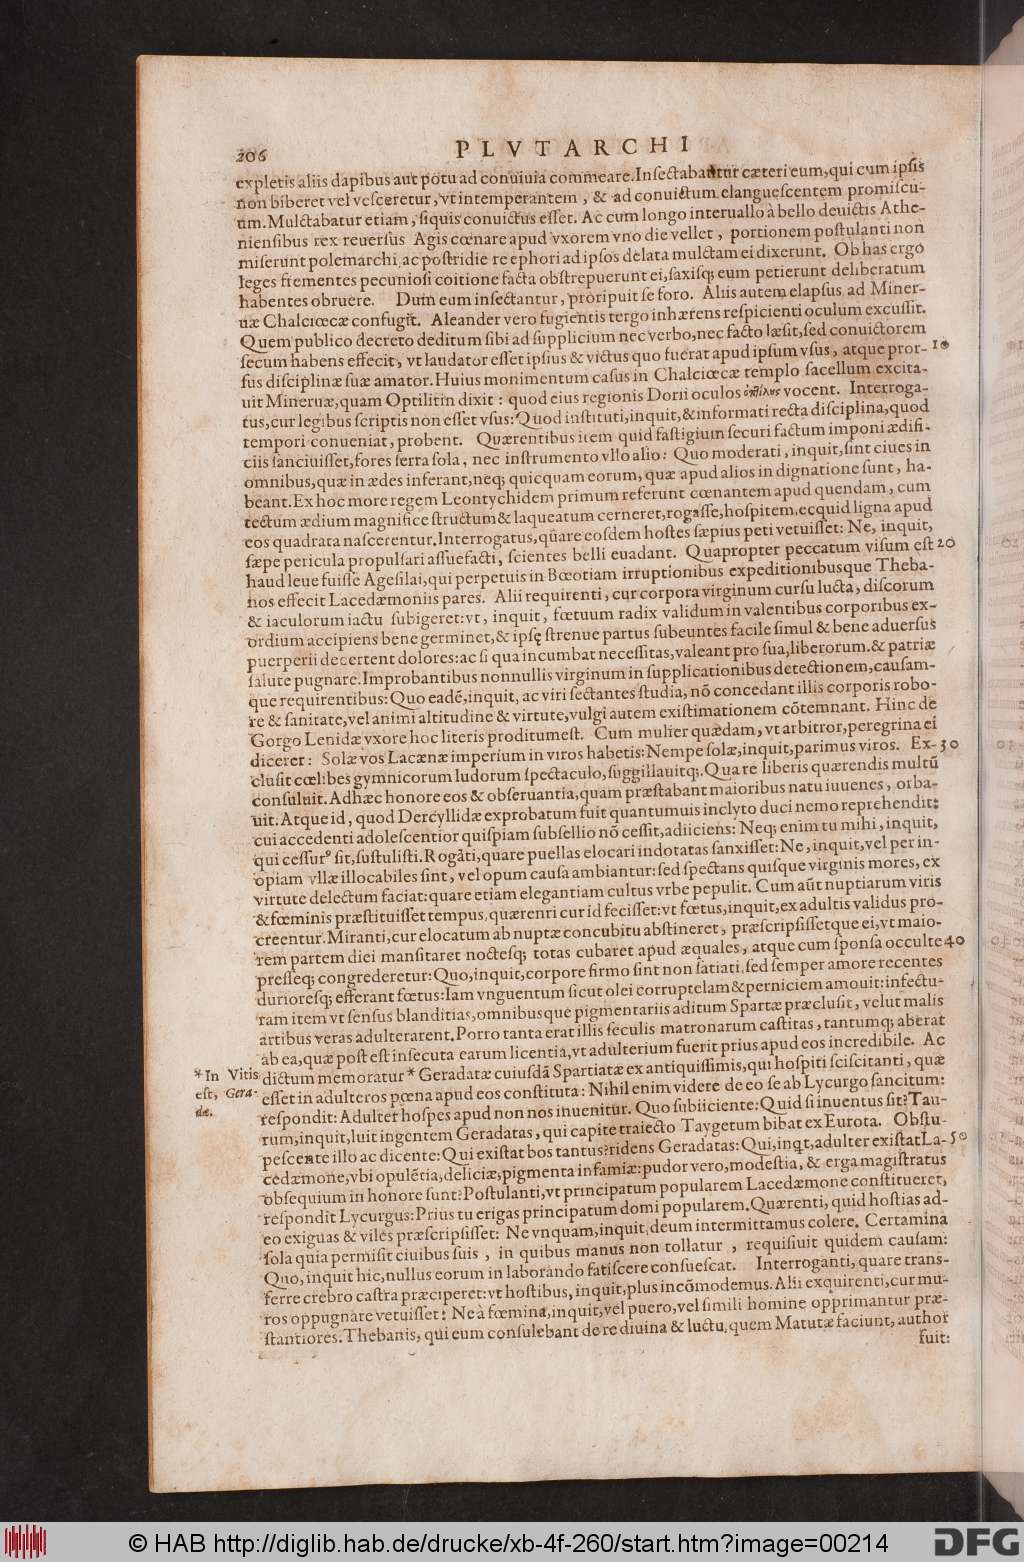 206 PLVTARCHI
expletis aliis dapibus aut potu ad conuiuia commeare. Insectabantur cæteri eum, qui cum ipsis
non biberet vel vesceretur, vt intemperantem, & ad conuictum elanguescentem promiscu-
um. Mulctabatur etiam, siquis conuictus esset. Ac cum longo interuallo à bello deuictis Athe-
niensibus rex reuersus Agis cœnare apud vxorem vno die vellet, portionem postulanti non
miserunt polemarchi, ac postridie re ephori ad ipsos delata mulctam ei dixerunt. Ob has ergo
leges frementes pecuniosi coitione facta obstrepuerunt ei, saxisq; eum petierunt deliberatum
habentes obruere. Dum eum insectantur, proripuit se foro. Aliis autem elapsus ad Miner-
uæ Chalciœcæ confugit. Aleander vero fugientis tergo inhærens respicienti oculum excussit.
Quem publico decreto deditum sibi ad supplicium nec verbo, nec facto læsit, sed conuictorem
secum habens effecit, vt laudator esset ipsius & victus quo fuerat apud ipsum vsus, atque pror- 10
sus disciplinæ suæ amator. Huius monimentum casus in Chalciœcæ templo sacellum excita-
uit Mineruæ, quam Optilitin dixit: quod eius regionis Dorii oculos ὀπτίλους vocent. Interroga-
tus, cur legibus scriptis non esset vsus: Quod instituti, inquit, & informati recta disciplina, quod
tempori conueniat, probent. Quærentibus item quid fastigium securi factum imponi ædifi-
ciis sanciuisset, fores serra sola, nec instrumento vllo alio: Quo moderati, inquit, sint ciues in
omnibus, quæ in ædes inferant, neq; quicquam eorum, quæ apud alios in dignatione sunt, ha-
beant. Ex hoc more regem Leontychidem primum referunt cœnantem apud quendam, cum
tectum ædium magnifice structum & laqueatum cerneret, rogasse, hospitem, ecquid ligna apud
eos quadrata nascerentur. Interrogatus, quare eosdem hostes sæpius peti vetuisset: Ne, inquit,
sæpe pericula propulsari assuefacti, scientes belli euadant. Quapropter peccatum visum est 20
haud leue fuisse Agesilai, qui perpetuis in Bœotiam irruptionibus expeditionibusque Theba-
nos effecit Lacedæmoniis pares. Alii requirenti, cur corpora virginum cursu lucta, discorum
& iaculorum iactu subigeret: vt, inquit, fœtuum radix validum in valentibus corporibus ex-
ordium accipiens bene germinet, & ipsę strenue partus subeuntes facile simul & bene aduersus
puerperii decertent dolores: ac si qua incumbat necessitas, valeant pro sua, liberorum. & patriæ
salute pugnare. Improbantibus nonnullis virginum in supplicationibus detectionem, causam-
que requirentibus: Quo eadē. inquit, ac viri sectantes studia, nō concedant illis corporis robo-
re & sanitate, vel animi altitudine & virtute, vulgi autem existimationem cōtemnant. Hinc de
Gorgo Leonidæ vxore hoc literis proditum est. Cum mulier quædam, vt arbitror, peregrina ei
diceret: Solæ vos Lacænæ imperium in viros habetis: Nempe solæ, inquit, parimus viros. Ex- 30
clusit cœlibes gymnicorum ludorum spectaculo, suggillauitq;. Qua re liberis quærendis multū
consuluit. Adhæc honore eos & obseruantia, quam præstabant maioribus natu iuuenes, orba-
uit. Atque id, quod Dercyllidæ exprobatum fuit quantumuis inclyto duci nemo reprehendit:
cui accedenti adolescentior quispiam subsellio nō cessit, adiiciens: Neq; enim tu mihi, inquit,
qui cessurꝰ sit, sustulisti. Rogāti, quare puellas elocari indotatas sanxisset: Ne, inquit, vel per in-
opiam vllæ illocabiles sint, vel opum causa ambiantur: sed spectans quisque virginis mores, ex
virtute delectum faciat: quare etiam elegantiam cultus vrbe pepulit. Cum aūt nuptiarum viris
& fœminis præstituisset tempus, quærenti cur id fecisset: vt fœtus, inquit, ex adultis validus pro-
creentur. Miranti, cur elocatum ab nuptæ concubitu abstineret, præscripsissetque ei, vt maio-
rem partem diei mansitaret noctesq; totas cubaret apud æquales, atque cum sponsa occulte 40
presseq; congrederetur: Quo, inquit, corpore firmo sint non satiati, sed semper amore recentes
durioresq; efferant fœtus: Iam vnguentum sicut olei corruptelam & perniciem amouit: infectu-
ram item vt sensus blanditias, omnibusque pigmentariis aditum Spartæ præclusit, velut malis
artibus veras adulterarent. Porro tanta erat illis seculis matronarum castitas, tantumq; aberat
ab ea, quæ post est insecuta earum licentia, vt adulterium fuerit prius apud eos incredibile. Ac
*In Vitis dictum memoratur * Geradatæ cuiusdā Spartiatæ ex antiquissimis, qui hospiti sciscitanti, quæ
est, Gera- esset in adulteros pœna apud eos constituta: Nihil enim videre de eo se ab Lycurgo sancitum:
dæ. respondit: Adulter hospes apud non nos inuenitur. Quo subiiciente: Quid si inuentus sit? Tau-
rum, inquit, luit ingentem Geradatas, qui capite traiecto Taygetum bibat ex Eurota. Obstu-
pescente illo ac dicente: Qui existat bos tantus? ridens Geradatas: Qui, inqt, adulter existat La- 50
cedæmone, vbi opulētia, deliciæ, pigmenta infamiæ: pudor vero, modestia, & erga magistratus
obsequium in honore sunt? Postulanti, vt principatum popularem Lacedæmone constitueret,
respondit Lycurgus: Prius tu erigas principatum domi popularem. Quærenti, quid hostias ad-
eo exiguas & viles præscripsisset: Ne vnquam, inquit, deum intermittamus colere. Certamina
sola quia permisit ciuibus suis, in quibus manus non tollatur, requisiuit quidem causam:
Quo, inquit hic, nullus eorum in laborando fatiscere consuescat. Interroganti, quare trans-
ferre crebro castra præciperet: vt hostibus, inquit, plus incōmodemus. Alii exquirenti, cur mu-
ros oppugnare vetuisset: Ne à fœmina, inquit, vel puero, vel simili homine opprimantur præ-
stantiores. Thebanis, qui eum consulebant de re diuina & luctu, quem Matutæ faciunt, author
fuit:
© HAB http://diglib.hab.de/drucke/xb-4f-260/start.htm?image=00214 DFG